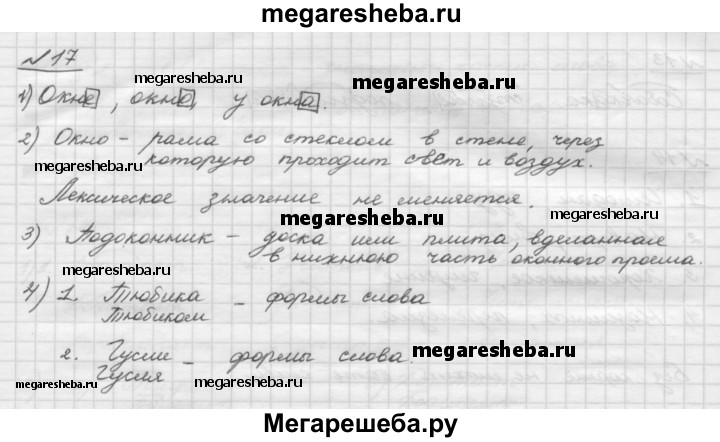 megaresheba.ru
№17
megaresheba.ru
megaresheba.ru
1) Окне, окно, у окна.
2) Окно - рама со стеклом в стене, через
megaresheba.ru
которую проходит свет и воздух.
megaresheba.ru
Лексическое значение не меняется.
megaresheba.ru
megaresheba.ru
3) Подоконник - доска или плита, вделанная
в нижнюю часть оконного проема.
megaresheba.ru
4) 1. Тюбика - формы слова
Тюбиком
2. Гусли - формы слова.
Гусля
megaresheba.ru
megaresheba.ru
megaresheba.ru
megaresheba.ru
Мегарешеба.ру